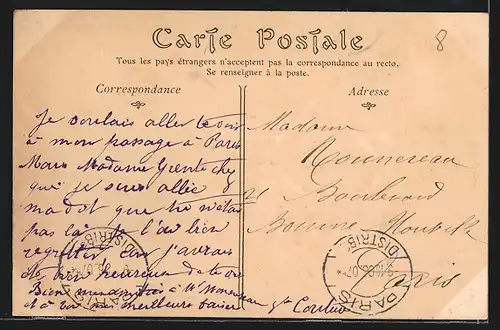 8
Carte Postale
Tous les pays étrangers n'acceptent pas la correspondance au recto.
Se renseigner à la poste.
Correspondance
Adresse
Je voulais aller te voir
à mon passage à Paris
Mais Madame Grente chez
qui je suis allée
m'a dit que tu n'étais
pas là je l'ai bien
regretter car j'aurais
été bien heureux de te voir
Bien
et à toi mes meilleurs baiser
Madame
21 Boulevard
Bonne Nouvelle
Paris
DISTRIB
PARIS
DISTRIB
PARIS